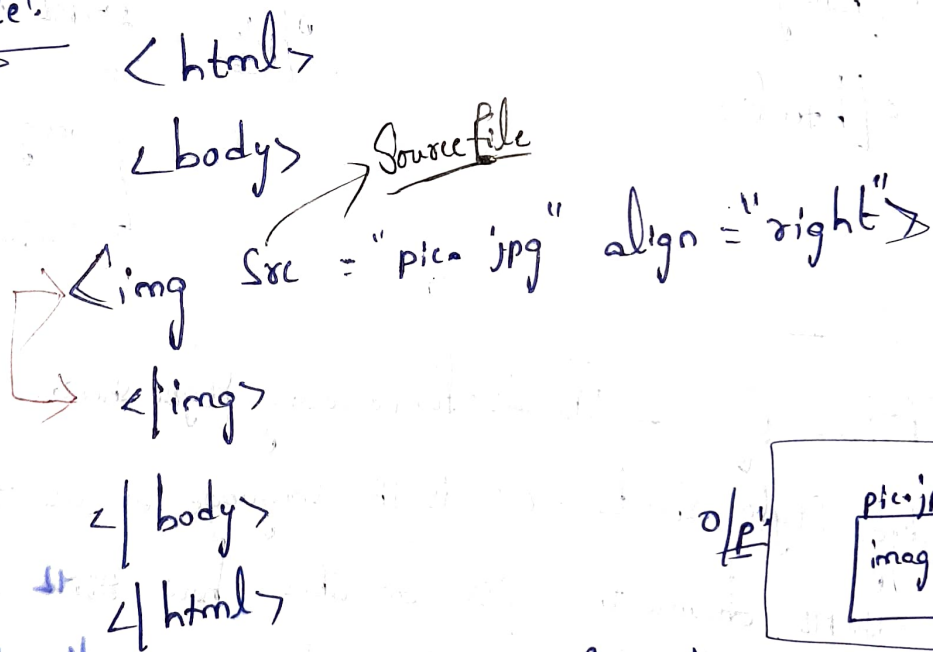 <html>
<body> Source file
<img src = "pic.jpg" align = "right">
</img>
</body>
O/p:
</html>
imag